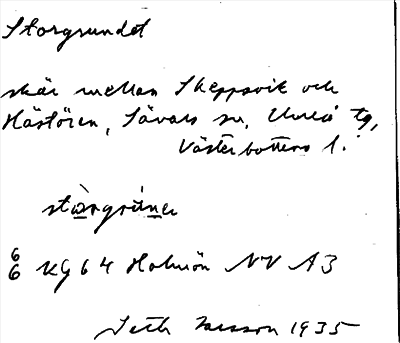 Storgrundet
skär mellan Skeppsvik och
Hästören, Sävars sn, Umeå tg,
Västerbottens l.
6
6 KG 64 Holmön NV A3
Seth 1935